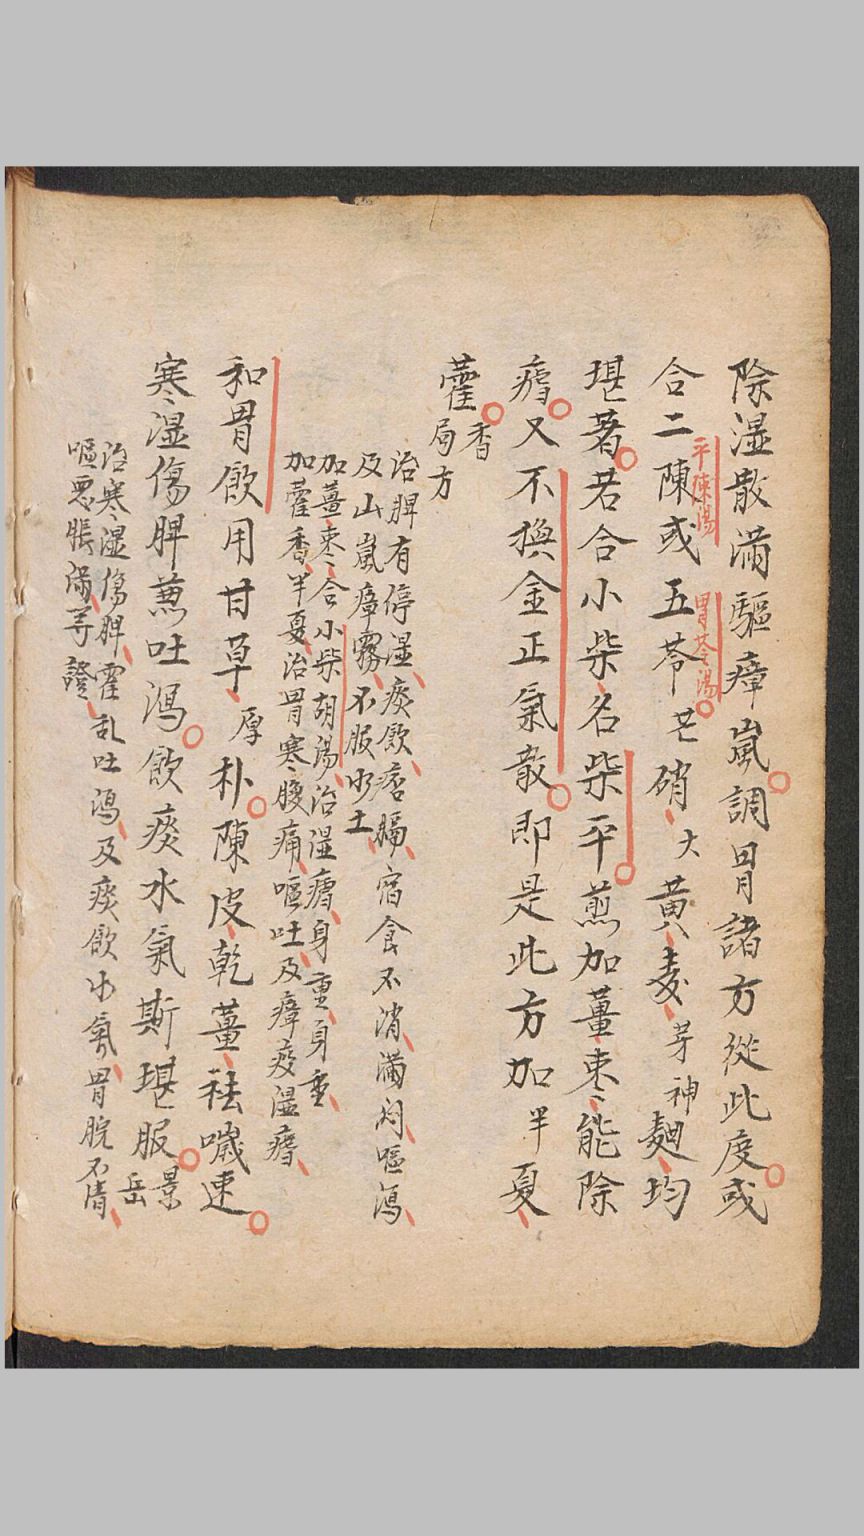 除湿散滿驅瘴嵐調胃諸方從此度或
合二陳或五苓芒硝大黄麦芽神麯均
平陳湯
胃苓湯
堪著若合小柴名柴平煎加薑枣能除
瘧又不換金正氣散即是此方加半夏
藿香局方
治脾有停湿痰飲痞膈宿食不消滿悶嘔瀉
及山嵐瘴霧不服水土
加薑枣合小柴胡湯治湿瘧身重身重
加藿香半夏治胃寒腹痛嘔吐及瘴疫温瘧
和胃飲用甘草厚朴陳皮乾薑祛噦速
寒湿傷脾蕪吐瀉飲痰水氣斯堪服景岳
治寒湿傷脾霍乱吐瀉及痰飲水氣胃脘不清
嘔悪脹滿等證